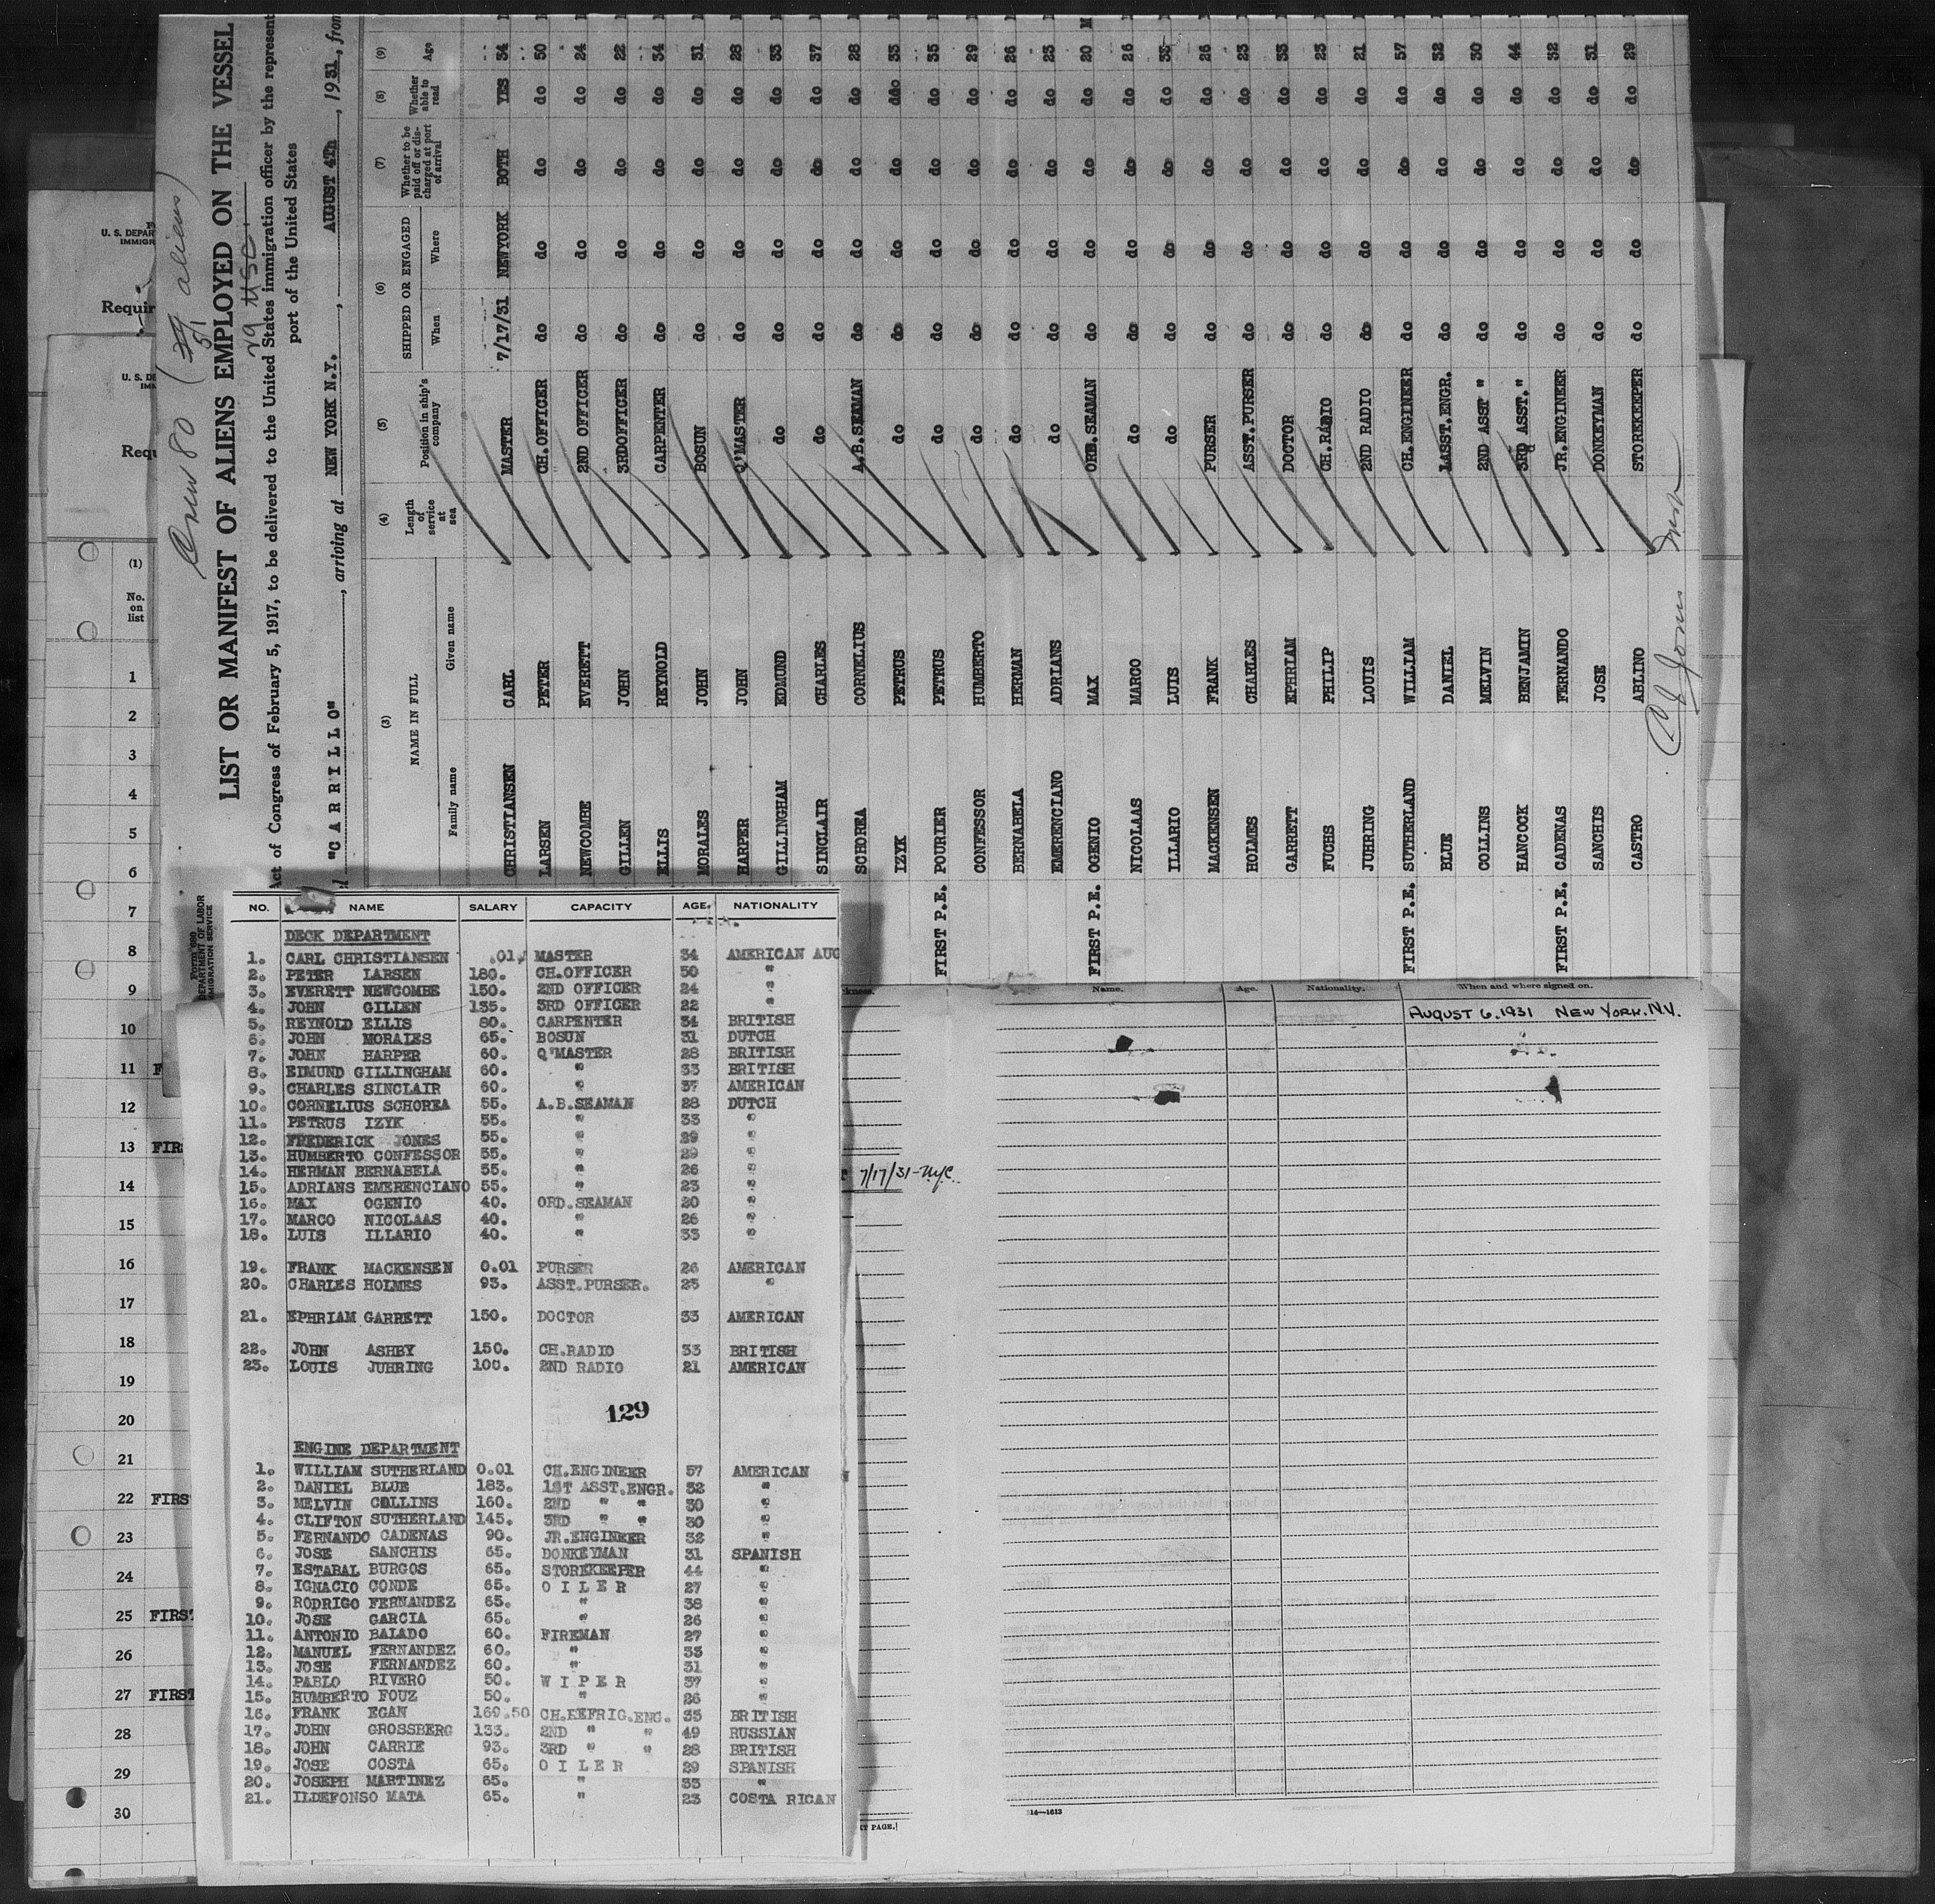 Crew 80 (51 aliens)
29 USC.
LIST OR MANIFEST OF ALIENS EMPLOYED ON THE VESSEL
Act of Congress of February 5, 1917, to be delivered to the United States immigration officer by the represent
port of the United States
"C A R R I L L O", arriving at NEW YORK N.Y., AUGUST 4Th, 1931, from
(3) (4) (5) (6) (7) (8) (9)
NAME IN FULL Length of service at sea Position in ship's company SHIPPED OR ENGAGED Whether to be paid off or discharged at port of arrival Whether able to read Age
Family name Given name When Where
CHRISTIANSEN CARL MASTER 7/17/31 NEWYORK BOTH YES 34
LARSEN PETER CH.OFFICER do do do do 50
NEWCOMBE EVERETT 2ND OFFICER do do do do 24
GILLEN JOHN 3RDOFFICER do do do do 22
ELLIS REYNOLD CARPENTER do do do do 34
MORALES JOHN BOSUN do do do do 31
HARPER JOHN Q'MASTER do do do do 28
GILLINGHAM EDMUND do do do do do 33
SINCLAIR CHARLES do do do do do 37
SCHOREA CORNELIUS A.B.SEAMAN do do do do 28
IZYK PETRUS do do do do ddo 33
FIRST P.E. POURIER PETRUS do do do do do 35
CONFESSOR HUMBERTO do do do do do 29
BERNABELA HERMAN do do do do do 26
EMERENCIANO ADRIANS do do do do do 23
FIRST P.E. OGENIO MAX ORD.SEAMAN do do do do 20 M
NICOLAAS MARCO do do do do do 26
ILLARIO LUIS do do do do do 33
MACKENSEN FRANK PURSER do do do do 26
HOLMES CHARLES ASST.PURSER do do do do 23
GARRETT EPHRIAM DOCTOR do do do do 33
FUCHS PHILIP CH.RADIO do do do do 23
JUHRING LOUIS 2ND RADIO do do do do 21
FIRST P.E. SUTHERLAND WILLIAM CH.ENGINEER do do do do 57
BLUE DANIEL 1ASST.ENGR. do do do do 32
COLLINS MELVIN 2ND ASST " do do do do 30
HANCOCK BENJAMIN 3RD ASST." do do do do 44
FIRST P.E. CADENAS FERNANDO JR.ENGINEER do do do do 32
SANCHIS JOSE DONKEYMAN do do do do 31
CASTRO ABLINO STOREKEEPER do do do do 29
Form 680
DEPARTMENT OF LABOR
IMMIGRATION SERVICE
U. S. DEPAR
IMMIGR
Requir
U. S. DE
IMM
Requ
(1)
No.
on
list
1
2
3
4
5
6
7
8
9
10
11 F
12
13 FIR
14
15
16
17
18
19
20
21
22 FIRS
23
24
25 FIRST
26
27 FIRST
28
29
30
NO. NAME SALARY CAPACITY AGE. NATIONALITY
DECK DEPARTMENT
1. CARL CHRISTIANSEN .01 MASTER 34 AMERICAN AUG
2. PETER LARSEN 180. CH.OFFICER 50 "
3. EVERETT NEWCOMBE 150. 2ND OFFICER 24 "
4. JOHN GILLEN 135. 3RD OFFICER 22 "
5. REYNOLD ELLIS 80. CARPENTER 34 BRITISH
6. JOHN MORALES 65. BOSUN 31 DUTCH
7. JOHN HARPER 60. Q'MASTER 28 BRITISH
8. EDMUND GILLINGHAM 60. " 33 BRITISH
9. CHARLES SINCLAIR 60. " 37 AMERICAN
10. CORNELIUS SCHOREA 55. A.B.SEAMAN 28 DUTCH
11. PETRUS IZYK 55. " 33 "
12. FREDERICK JONES 55. " 29 "
13. HUMBERTO CONFESSOR 55. " 29 "
14. HERMAN BERNABELA 55. " 26 "
15. ADRIANS EMERENCIANO 55. " 23 "
16. MAX OGENIO 40. ORD.SEAMAN 20 "
17. MARCO NICOLAAS 40. " 26 "
18. LUIS ILLARIO 40. " 33 "
19. FRANK MACKENSEN 0.01 PURSER 26 AMERICAN
20. CHARLES HOLMES 93. ASST.PURSER. 23 "
21. EPHRIAM GARRETT 150. DOCTOR 33 AMERICAN
22. JOHN ASHBY 150. CH.RADIO 33 BRITISH
23. LOUIS JUHRING 100. 2ND RADIO 21 AMERICAN
129
ENGINE DEPARTMENT
1. WILLIAM SUTHERLAND 0.01 CH.ENGINEER 57 AMERICAN
2. DANIEL BLUE 183. 1ST ASST.ENGR. 32 "
3. MELVIN COLLINS 160. 2ND " " 30 "
4. CLIFTON SUTHERLAND 145. 3RD " " 30 "
5. FERNANDO CADENAS 90. JR.ENGINEER 32 "
6. JOSE SANCHIS 65. DONKEYMAN 31 SPANISH
7. ESTABAL BURGOS 65. STOREKEEPER 44 "
8. IGNACIO CONDE 65. O I L E R 27 "
9. RODRIGO FERNANDEZ 65. " 38 "
10. JOSE GARCIA 65. " 26 "
11. ANTONIO BALADO 60. FIREMAN 27 "
12. MANUEL FERNANDEZ 60. " 33 "
13. JOSE FERNANDEZ 60. " 31 "
14. PABLO RIVERO 50. W I P E R 37 "
15. HUMBERTO FOUZ 50. " 26 "
16. FRANK EGAN 169.50 CH.REFRIG.ENG. 33 BRITISH
17. JOHN GROSSBERG 133. 2ND " " 49 RUSSIAN
18. JOHN CARRIE 93. 3RD " " 28 BRITISH
19. JOSE COSTA 65. O I L E R 29 SPANISH
20. JOSEPH MARTINEZ 65. " 33 "
21. ILDEFONSO MATA 65. " 23 COSTA RICAN
7/17/31-N.Y.C.
Name. Age. Nationality. When and where signed on.
AUGUST 6, 1931 NEW YORK, N.Y.
14—1613
T PAGE.